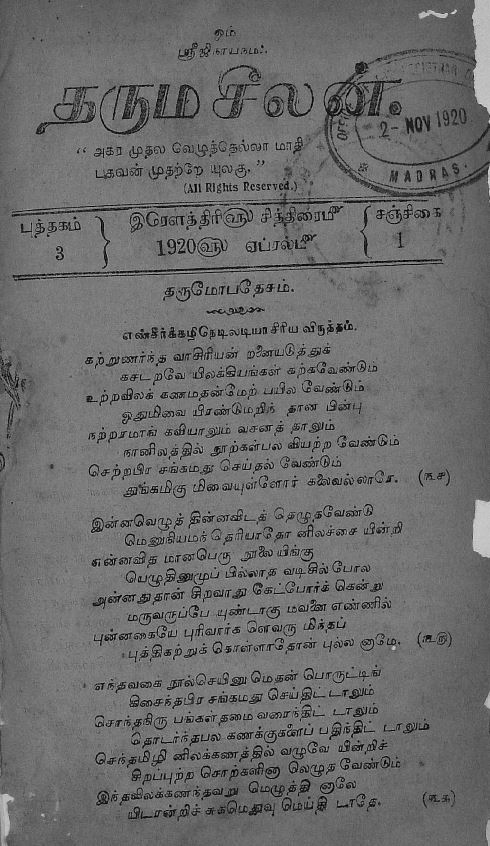 ஓம்
ஸ்ரீஜிநாயநம:.
தருமசீலன்.
“ அகர முதல வெழுத்தெல்லா மாதி
பகவன் முதற்றே யுலகு. ”
(All Rights Reserved.)
2- NOV 1920
MADRAS
புத்தகம் 3
இரௌத்திரிஹ சித்திரைமீ
1920ஹ ஏப்ரல்மீ
சஞ்சிகை 1
தருமோபதேசம்.
எண்சீர்க்கழிநெடிலடியாசிரிய விருத்தம்.
கற்றுணர்ந்த வாசிரியன் றனையடுத்துக்
கசடறவே யிலக்கியங்கள் கற்கவேண்டும்
உற்றவிலக் கணமதன்மேற் பயில வேண்டும்
ஒதுமிவை யிரண்டுமறிந் தான பின்பு
நற்றரமாங் கவியாலும் வசனத் தாலும்
நானிலத்தில் நூற்கள்பல வியற்ற வேண்டும்
செற்றபிர சங்கமது செய்தல் வேண்டும்
துங்கமிகு மிவையுள்ளோர் கலைவல்லாரே. (௩௪)
இன்னவெழுத் தின்னவிடத் தெழுதவேண்டு
மெனுநியமந் தெரியாதோ னிலச்சை யின்றி
என்னவித மானபெரு நூலை யிங்கு
யெழுதினுமுப் பில்லாத வடிசில் போல
அன்னதுதான் சிறவாது கேட்போர்க் கென்று
மருவருப்பே யுண்டாகு மவனை எண்ணில்
புன்னகையே புரிவார்க ளெவரு மிந்தப்
புத்திகற்றுக் கொள்ளாதோன் புல்ல னாமே. (௩௫)
எந்தவகை நூல்செயினு மெதன் பொருட்டிங்
கிசைந்தபிர சங்கமது செய்திட் டாலும்
சொந்தநிரு பங்கள்தமை வரைந்திட் டாலும்
தொடர்ந்தபல கணக்குகளைப் பதிந்திட் டாலும்
செந்தமிழி னிலக்கணத்தில் வழுவே யின்றிச்
சிறப்புற்ற சொற்களினா லெழுத வேண்டும்
இந்தவிலக்கணந்தவறு மெழுத்தி னாலே
யிடரன்றிச் சுகமெதுவு மெய்தி டாதே. (௩௬)